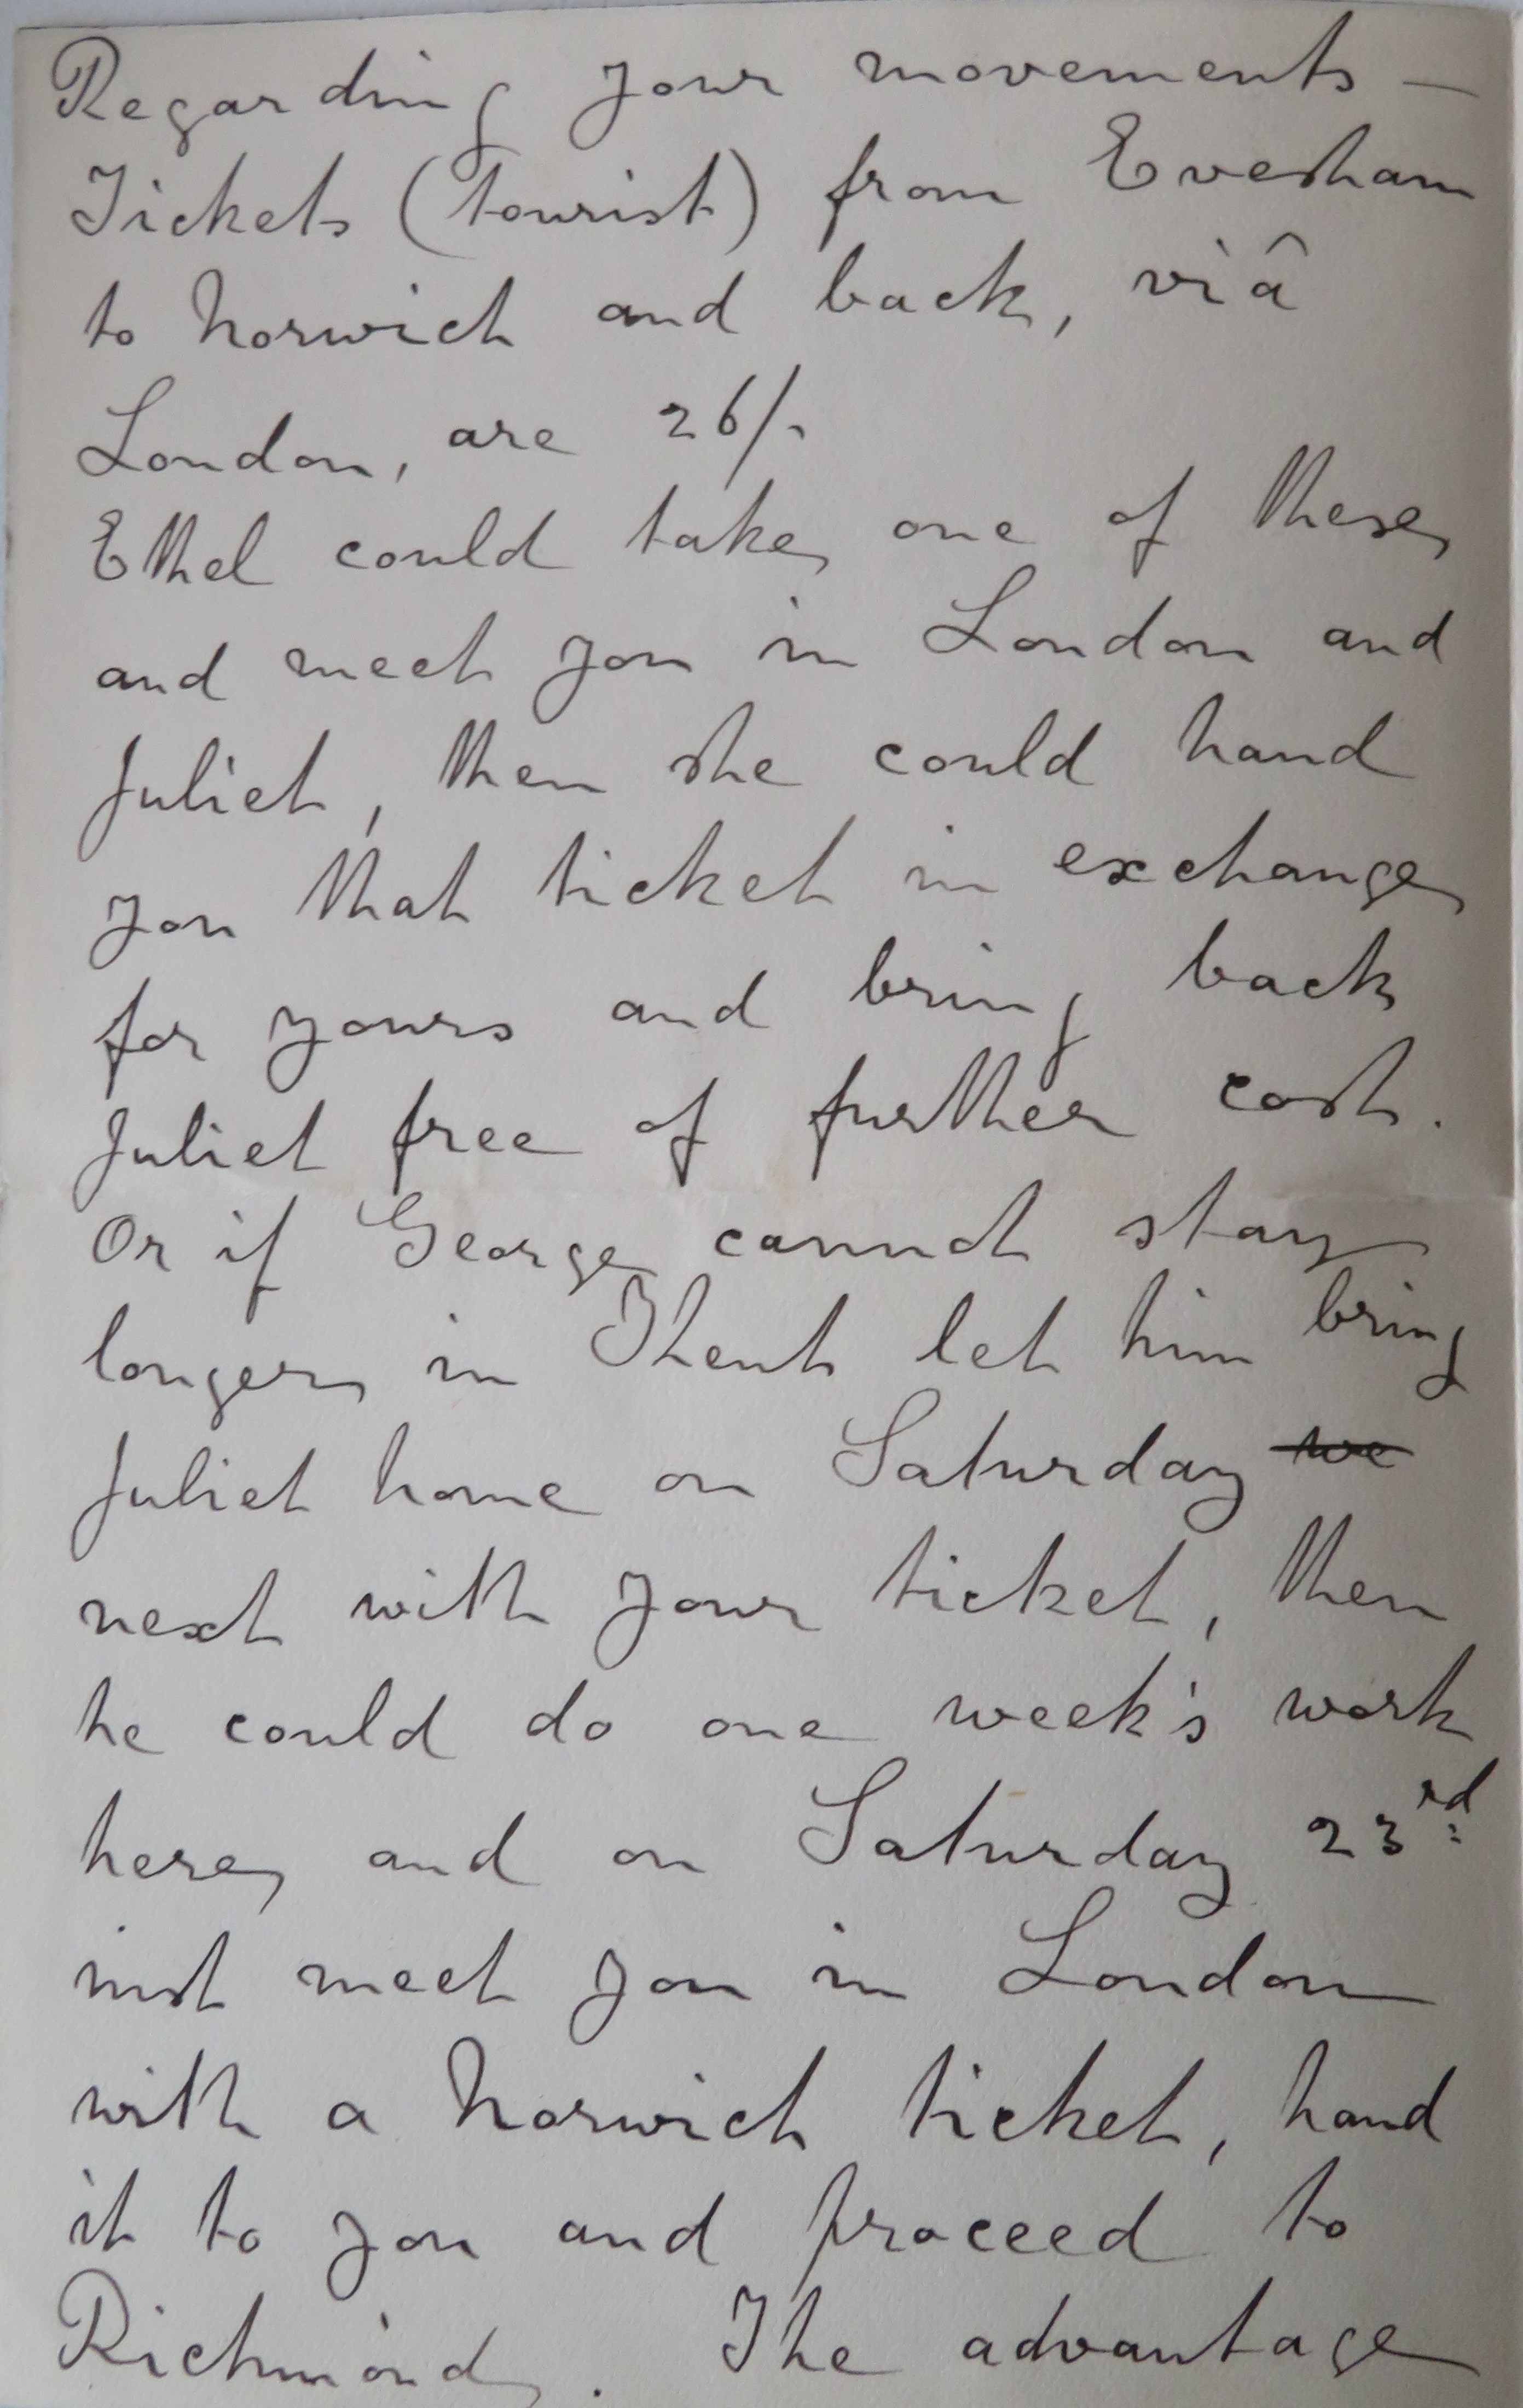 Regarding your movements —
Tickets (tourist) from Evesham
to Norwich and back, viâ
London, are 26/-
Ethel could take one of these
and meet you in London and
Juliet, then she could hand
you that ticket in exchange
for yours and bring back
Juliet free of further cost.
Or if George cannot stay
longer in Kent let him bring
Juliet home on Saturday we
next with your ticket, then
he could do one week's work
here, and on Saturday 23rd
inst meet you in London
with a Norwich ticket, hand
it to you and proceed to
Richmond. The advantage